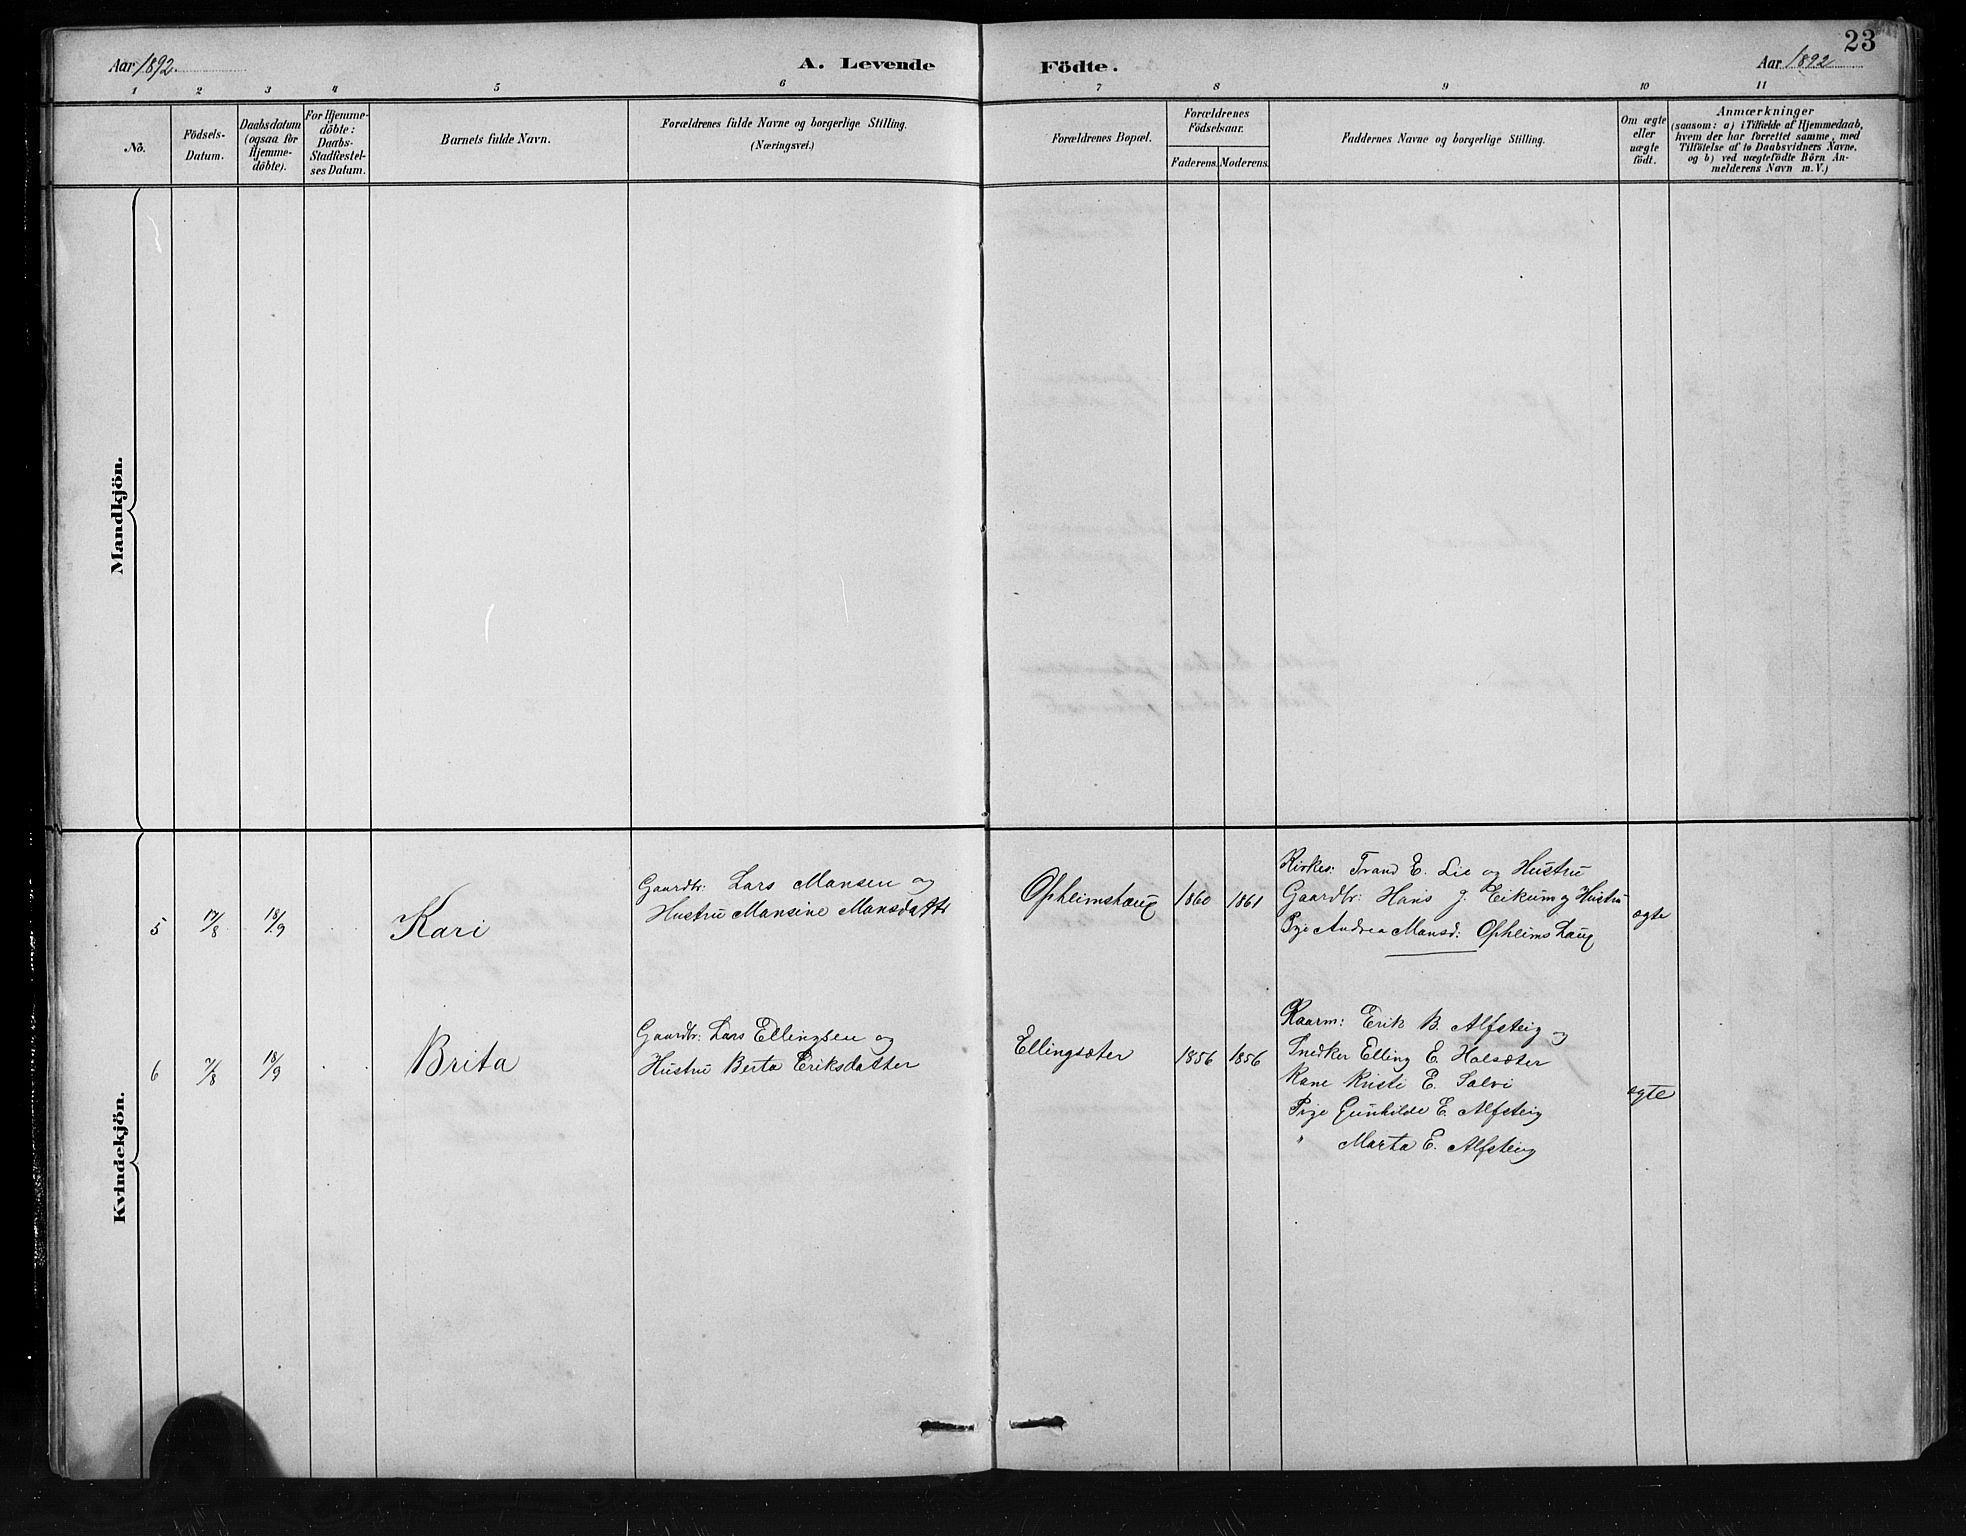 23
Aar 1892.
A. Levende Födte.
Aar 1892
1 2 3 4 5 6 7 8 9 10 11
No.
Födsels-
Datum.
Daabsdatum
(ogsaa for
Hjemme-
döbte).
For Hjemme-
döbte:
Daabs-
Stadfæstel-
ses Datum.
Barnets fulde Navn.
Forældrenes fulde Navne og borgerlige Stilling.
(Næringsvei.)
Forældrenes Bopæl.
Forældrenes
Födselsaar.
Faderens. Moderens.
Faddernes Navne og borgerlige Stilling.
Om ægte
eller
uægte
födt.
Anmærkninger
(saasom: a) i Tilfælde af Hjemmedaab,
hvem der har forrettet samme, med
Tilföielse af to Daabsvidners Navne,
og b) ved uægtefödte Börn An-
melderens Navn m. V.)
Mandkjön.
Kvindekjön.
5
17/8
18/9
Kari
Gaardbr: Lars Mansen og
Hustru Mansine Mansdattr
Opheimshaug
1860
1861
Kirkes: Trand E. Lie og Hustru
Gaardbr: Hans J. Eikum og Hustru
Pige Andrea Mansd: Opheimshaug
ægte
6
7/8
18/9
Brita
Gaardbr: Lars Ellingsen og
Hustru Berta Eriksdatter
Ellingsæter
1856
1856
Kaarm: Erik B. Alfsteig og
Snedker Elling E. Halsæter
Kone Kristi E. Salvi
Pige Gunhilde E. Alfsteig
" Marta E. Alfsteig
ægte